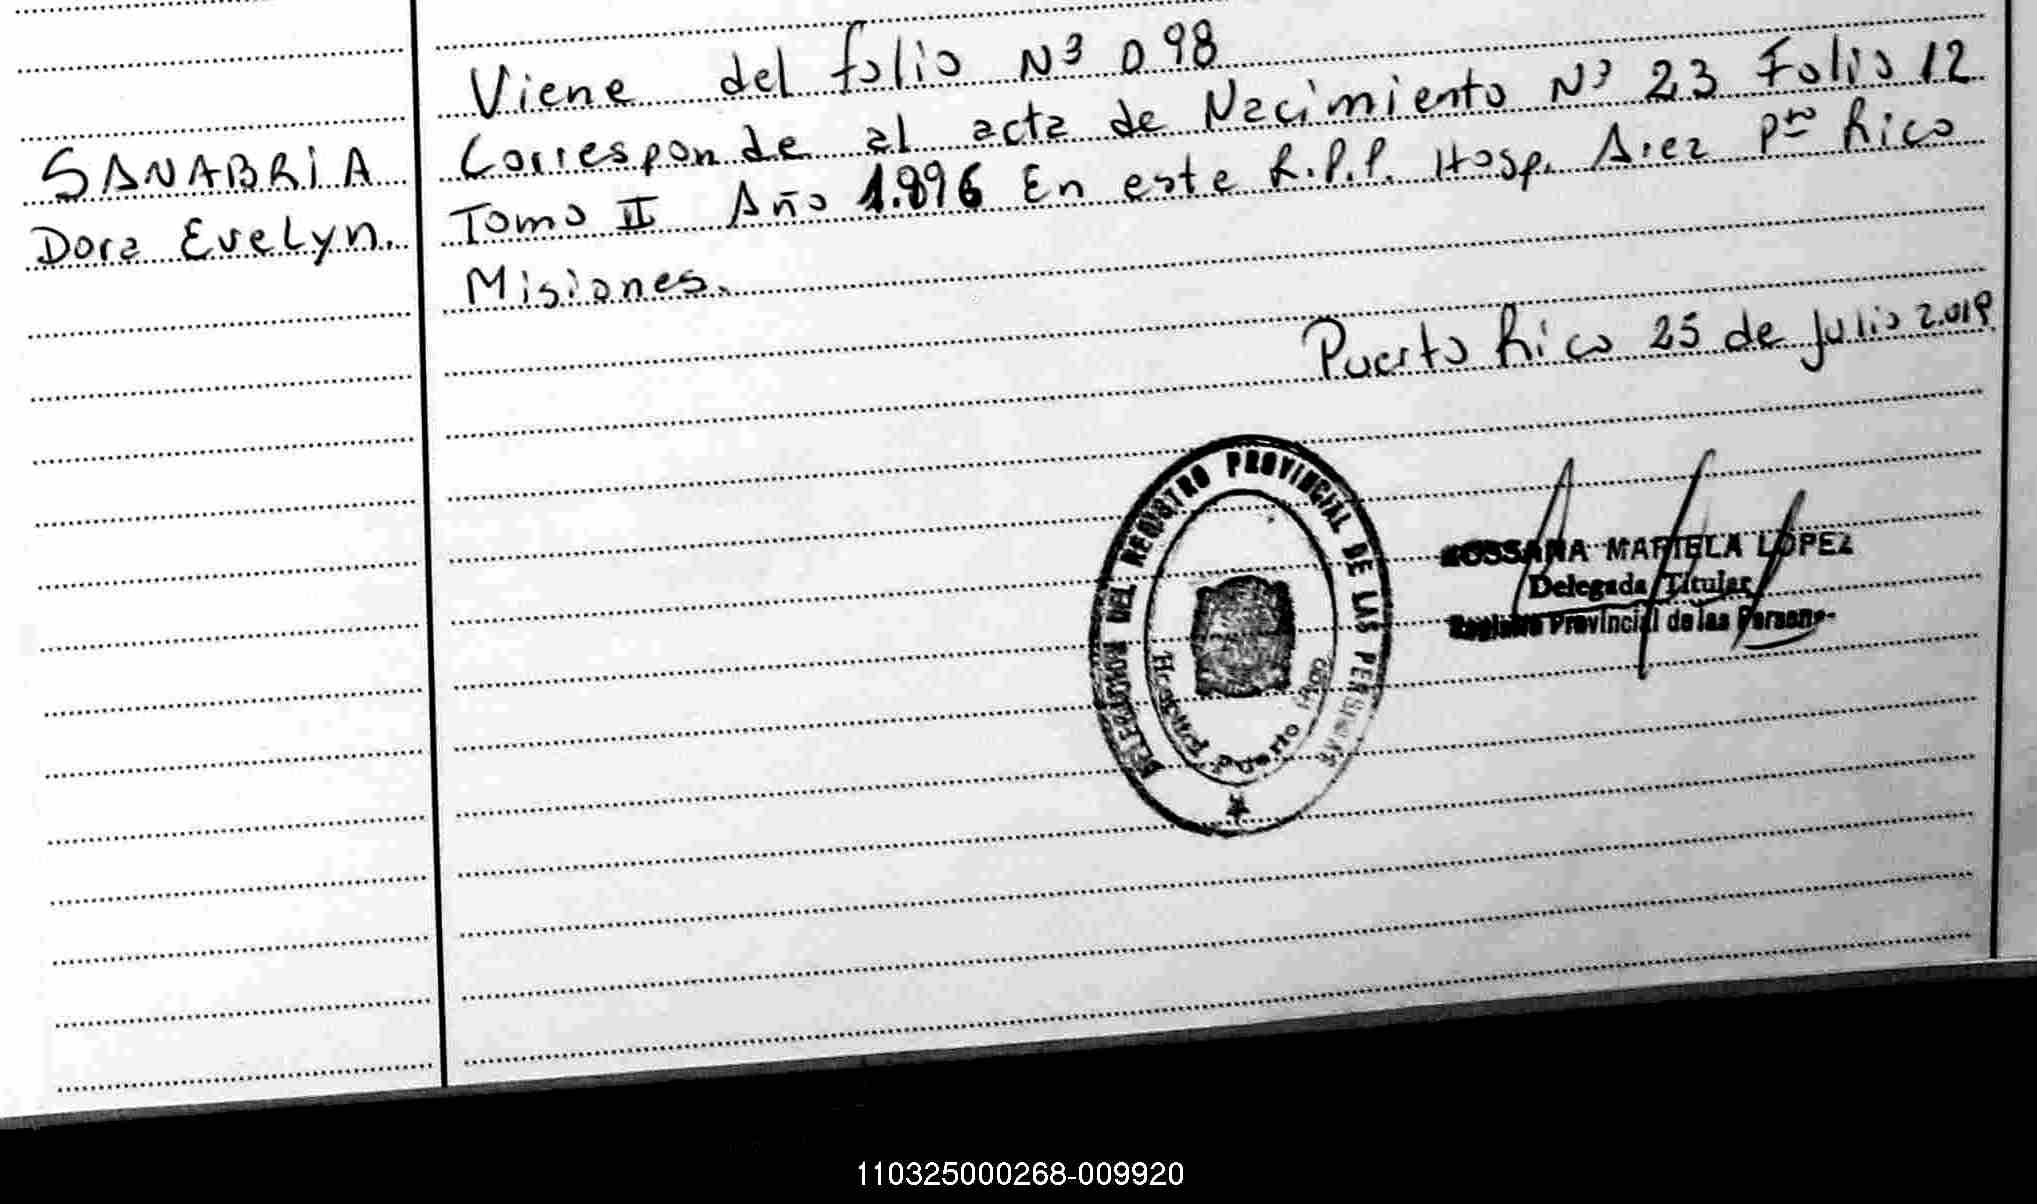 Viene del folio Nº 098
SANABRIA Corresponde al acta de Nacimiento Nº 23 Folio 12
Dora Evelyn. Tomo II Año 1.996 En este R.P.P. Hosp. Area Pto Rico
Misiones.
Puerto Rico 25 de Julio 2.019
DELEGACION DEL REGISTRO PROVINCIAL DE LAS PERSONAS
Hospital Puerto Rico
ROSSANA MARIELA LOPEZ
Delegada Titular
Registro Provincial de las Persona
110325000268-009920